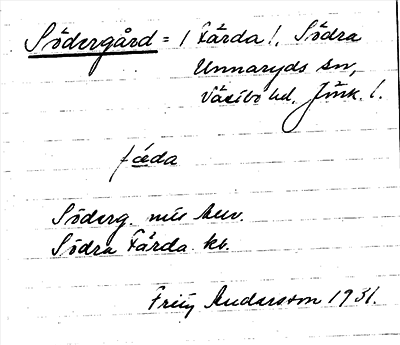 Södergård = / Färda /, Södra
Unnaryds sn,
Västbo hd, Jönk. l.
fœda
Söderg. nu: huv.
Södra Färda kv.
Fritz Andersson 1931.